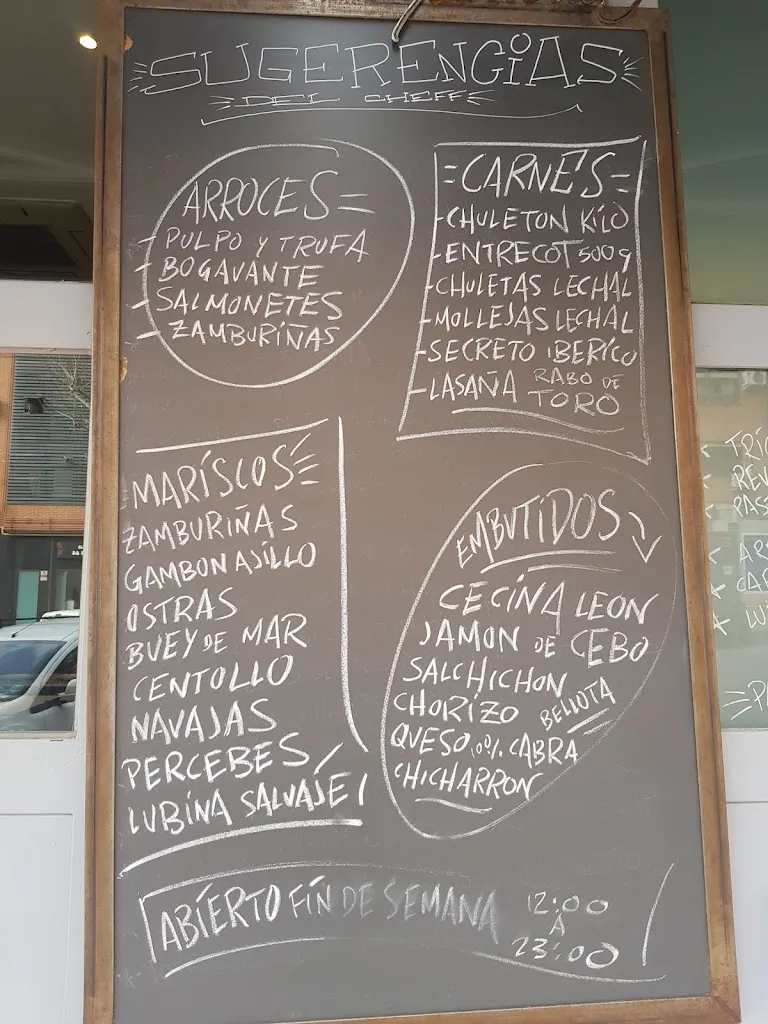 SUGERENCIAS
DEL CHEFF
ARROCES
- PULPO Y TRUFA
- BOGAVANTE
- SALMONETES
- ZAMBURIÑAS
=CARNES=
-CHULETON KILO
-ENTRECOT 500g
-CHULETAS LECHAL
-MOLLEJAS LECHAL
-SECRETO IBERICO
-LASAÑA RABO DE
TORO
MARÍSCOS
ZAMBURIÑAS
GAMBON AJILLO
OSTRAS
BUEY DE MAR
CENTOLLO
NAVAJAS
PERCEBES
LUBINA SALVAJE!
EMBUTIDOS
CECINA LEON
JAMON DE CEBO
SALCHICHON
CHORIZO BELLOTA
QUESO 100% CABRA
CHICHARRON
ABIERTO FIN DE SEMANA
12:00
A
23:00